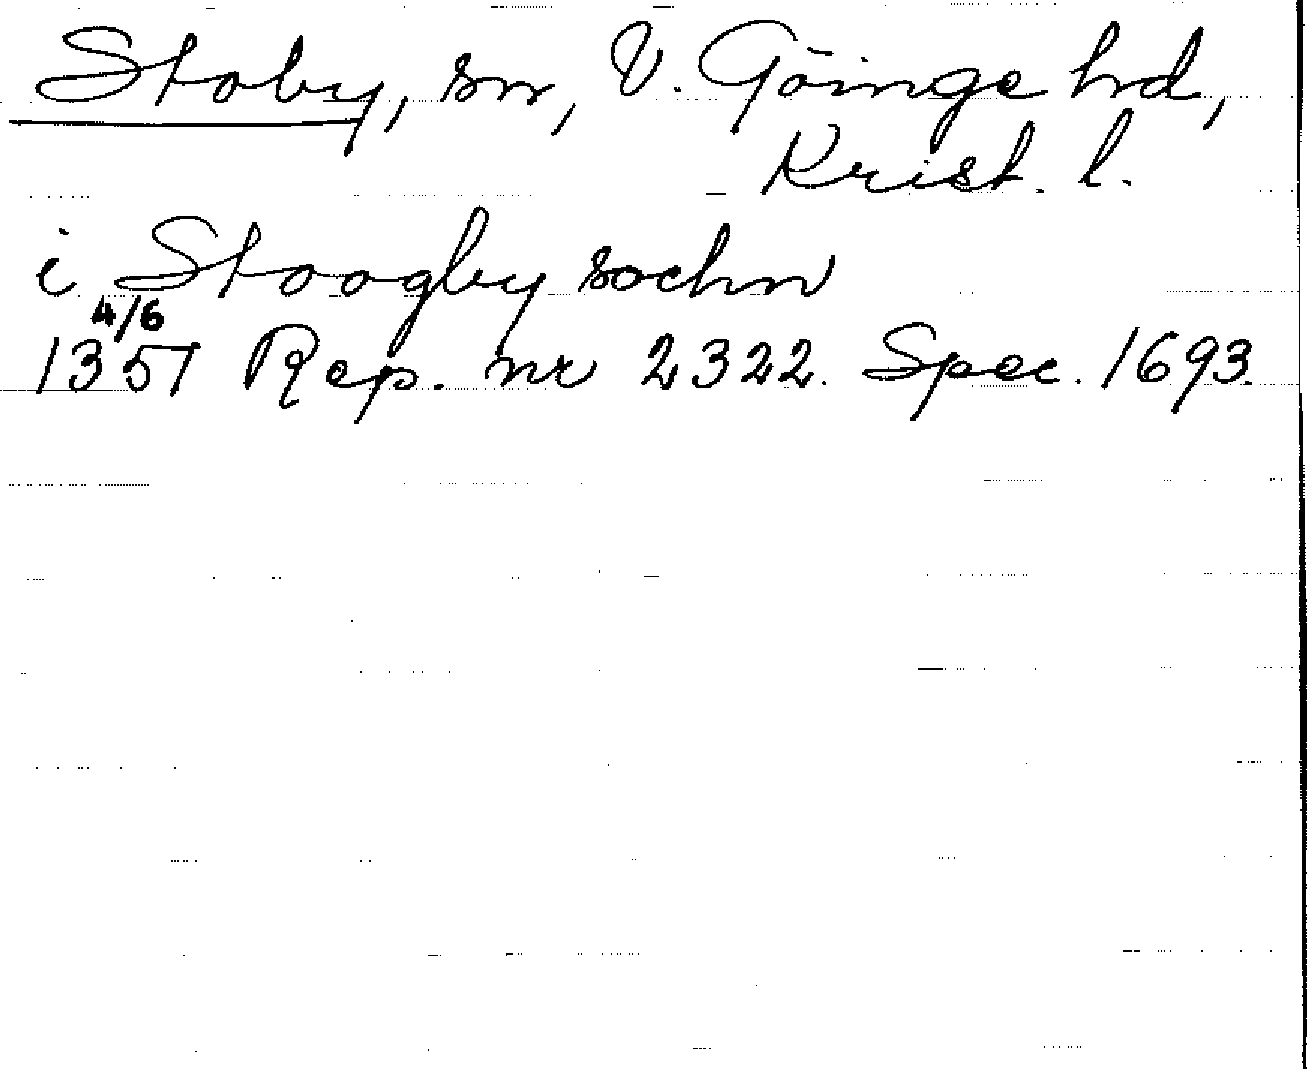 Stoby, sn, V. Göinge hd,
Krist. l.
i Stoogby sochn
4/6
1357 Rep. nr 2322. Spec. 1693.